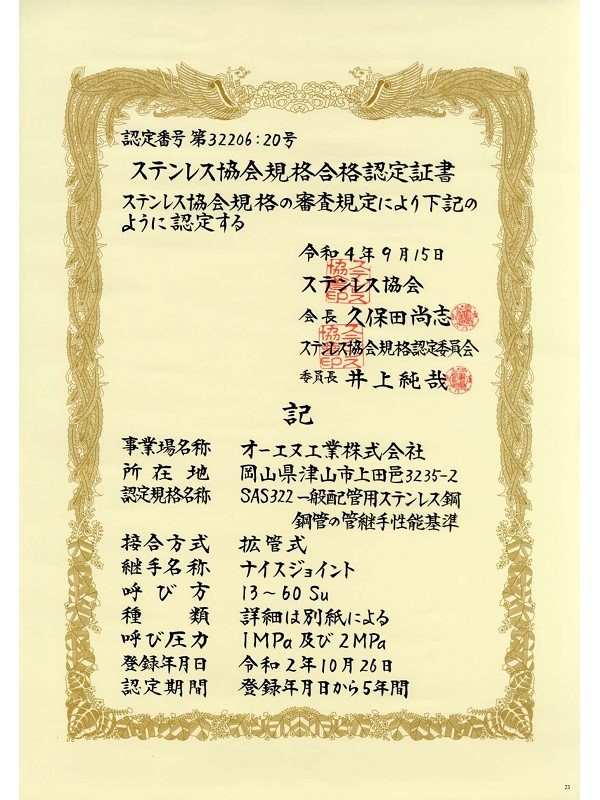 認定番号 第32206:20号
ステンレス協会規格合格認定証書
ステンレス協会規格の審査規定により下記の
ように認定する
令和4年9月15日
ステンレス協会
会長 久保田尚志
ステンレス協会規格認定委員会
委員長 井上純哉
記
事業場名称 オーエヌ工業株式会社
所在地 岡山県津山市上田邑3235-2
認定規格名称 SAS322 一般配管用ステンレス鋼
鋼管の管継手性能基準
接合方式 拡管式
継手名称 ナイスジョイント
呼び方 13~60 Su
種類 詳細は別紙による
呼び圧力 1MPa及び2MPa
登録年月日 令和2年10月26日
認定期間 登録年月日から5年間
23